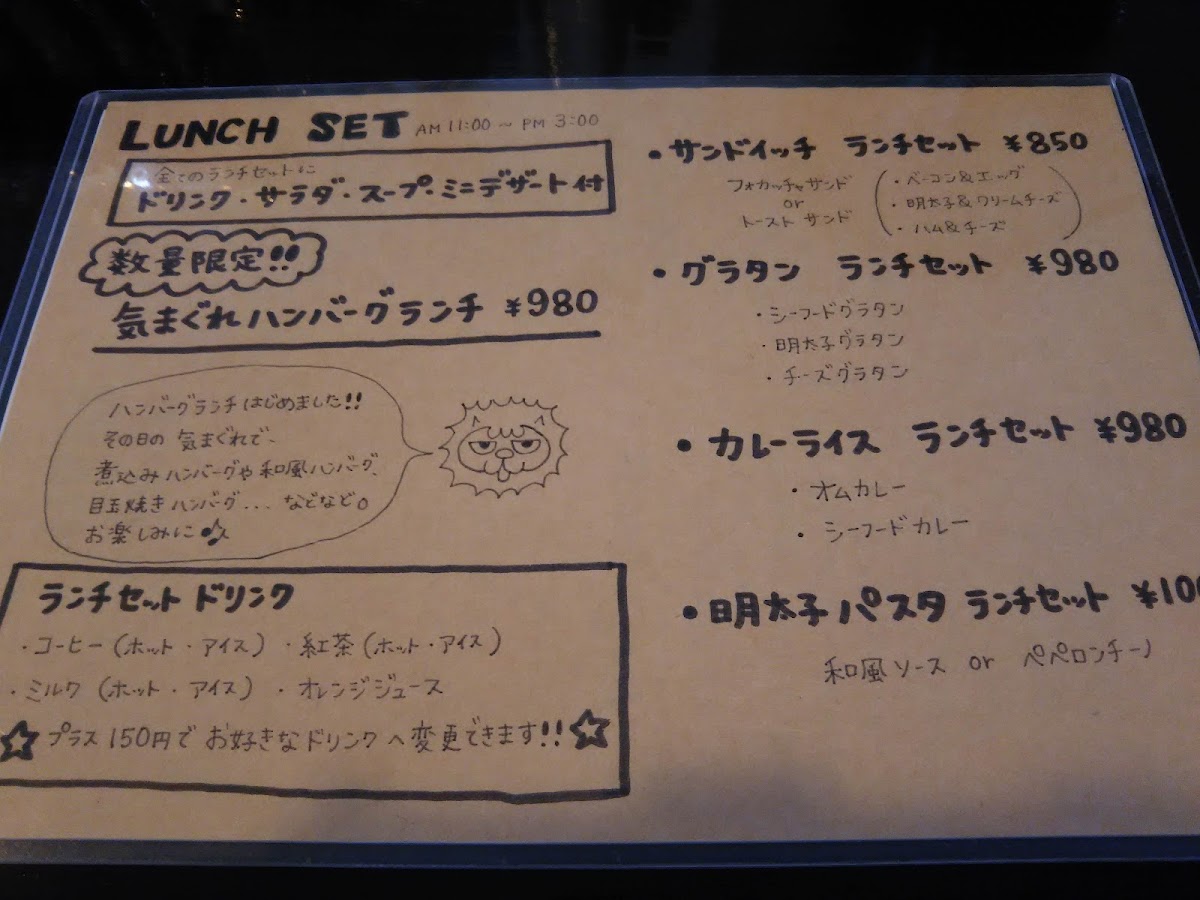 LUNCH SET AM 11:00 〜 PM 3:00
全てのランチセットに
ドリンク・サラダ・スープ・ミニデザート付
数量限定!!
気まぐれハンバーグランチ ¥980
ハンバーグランチはじめました!!
その日の 気まぐれで、
煮込みハンバーグや和風ハンバーグ、
目玉焼きハンバーグ... などなど。
お楽しみに♪
ランチセットドリンク
・コーヒー(ホット・アイス) ・紅茶(ホット・アイス)
・ミルク (ホット・アイス) ・オレンジジュース
☆プラス150円で お好きなドリンクへ変更できます!!☆
・サンドイッチ ランチセット ¥850
フォカッチャサンド
or
トースト サンド
・ベーコン&エッグ
・明太子&クリームチーズ
・ハム&チーズ
・グラタン ランチセット ¥980
・シーフードグラタン
・明太子グラタン
・チーズグラタン
・カレーライス ランチセット ¥980
・オムカレー
・シーフードカレー
・明太子パスタ ランチセット
和風ソース or ペペロンチーノ